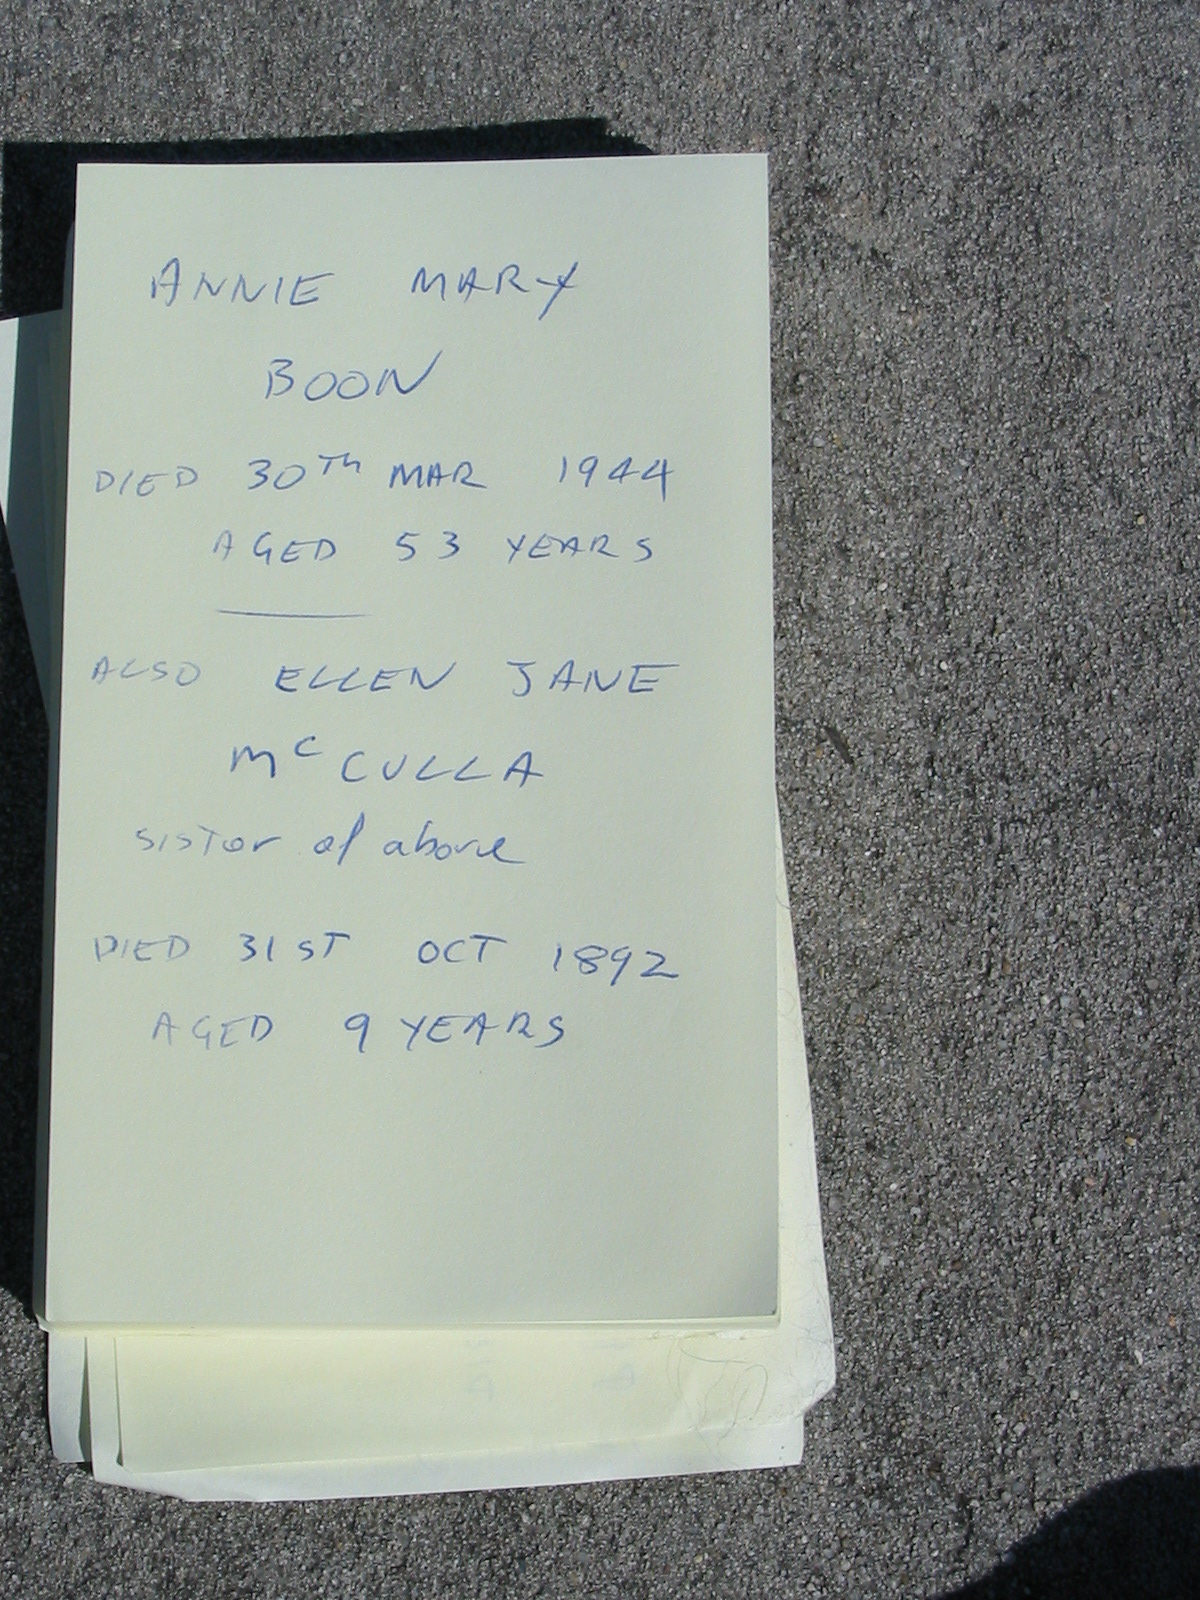 ANNIE MARY
BOON
DIED 30TH MAR 1944
AGED 53 YEARS
ALSO ELLEN JANE
McCULLA
sister of above
DIED 31ST OCT 1892
AGED 9 YEARS